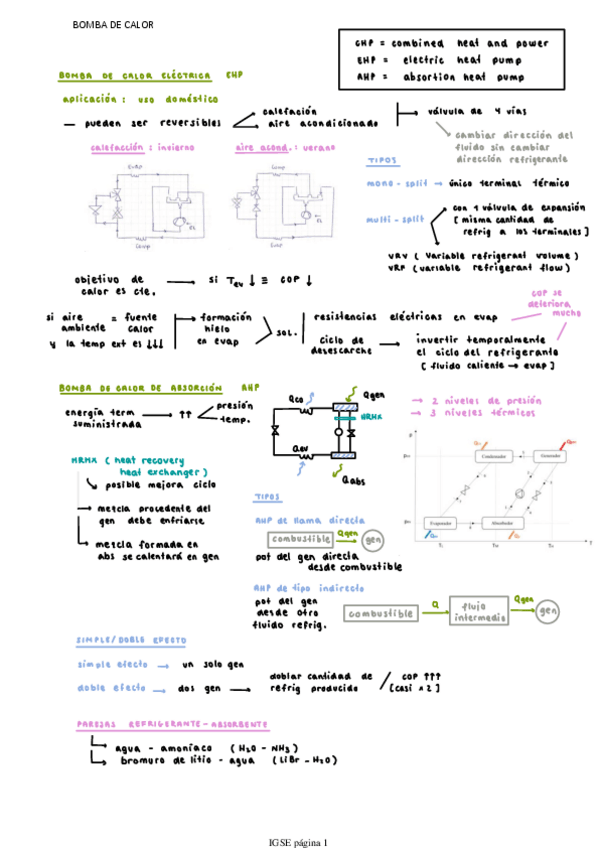 BOMBA DE CALOR
CHP = combined heat and power
EHP = electric heat pump
AHP = absortion heat pump
BOMBA DE CALOR ELÉCTRICA EHP
aplicación: uso doméstico
— pueden ser reversibles
calefacción
aire acondicionado
válvula de 4 vías
cambiar dirección del
fluido sin cambiar
dirección refrigerante
calefacción: invierno
aire acond.: verano
Evap
Cond
Cond
Evap
TIPOS
mono-split → único terminal térmico
multi-split
con 1 válvula de expansión
[misma cantidad de
refrig a los terminales]
VRV (Variable refrigerant volume)
VRF (variable refrigerant flow)
objetivo de
calor es cte.
si Tev ↓ ≡ COP ↓
si aire
ambiente
= fuente
calor
y la temp ext es ↓↓↓
formación
hielo
en evap
SOL.
resistencias eléctricas en evap
COP se
deteriora
mucho
ciclo de
desescarche
invertir temporalmente
el ciclo del refrigerante
[fluido caliente → evap]
BOMBA DE CALOR DE ABSORCIÓN AHP
energía term
suministrada
↑↑
presión
temp.
Qco
Qgen
HRHX
Qev
Qabs
→ 2 niveles de presión
→ 3 niveles térmicos
Condensador
Generador
Evaporador
Absorbedor
HRHX (heat recovery
heat exchanger)
posible mejora ciclo
mezcla procedente del
gen debe enfriarse
mezcla formada en
abs se calentará en gen
TIPOS
AHP de llama directa
combustible
Qgen
gen
pot del gen directa
desde combustible
AHP de tipo indirecto
pot del gen
desde otro
fluido refrig.
combustible
Q
flujo
intermedio
Qgen
gen
SIMPLE/DOBLE EFECTO
simple efecto → un solo gen
doble efecto → dos gen
doblar cantidad de
refrig producido
COP ↑↑↑
[casi x2]
PAREJAS REFRIGERANTE-ABSORBENTE
agua - amoníaco (H2O - NH3)
bromuro de litio - agua (LiBr - H2O)
IGSE página 1